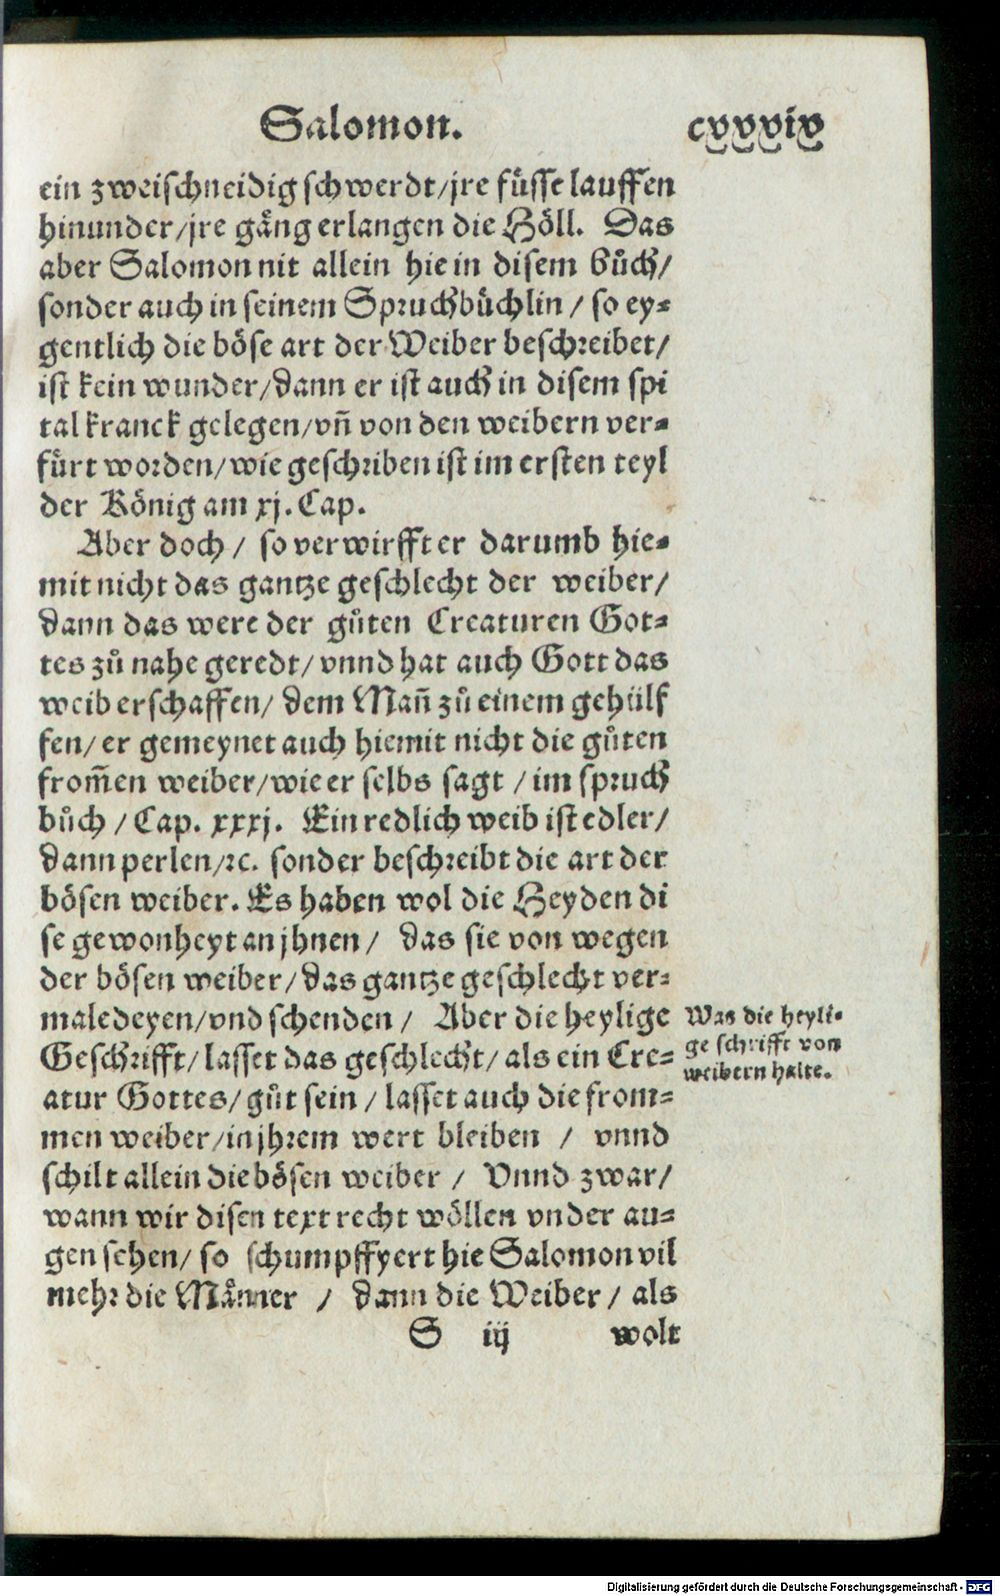 Salomon. cxxxix
ein zweischneidig schwerdt/jre füsse lauffen
hinunder/jre gäng erlangen die Höll. Das
aber Salomon nit allein hie in disem bůch/
sonder auch in seinem Spruchbüchlin / so ey⸗
gentlich die böse art der Weiber beschreibet/
ist kein wunder/dann er ist auch in disem spi
tal kranck gelegen/vñ von den weibern ver⸗
fürt worden/wie geschriben ist im ersten teyl
der König am xj. Cap.
Aber doch / so verwirfft er darumb hie⸗
mit nicht das gantze geschlecht der weiber/
dann das were der gůten Creaturen Got⸗
tes zů nahe geredt/vnnd hat auch Gott das
weib erschaffen/ dem Mañ zů einem gehülf
fen/er gemeynet auch hiemit nicht die gůten
from̃en weiber/wie er selbs sagt / im spruch
bůch / Cap. xxxj. Ein redlich weib ist edler/
dann perlen/ꝛc. sonder beschreibt die art der
bösen weiber. Es haben wol die Heyden di
se gewonheyt an jhnen / das sie von wegen
der bösen weiber/das gantze geschlecht ver⸗
maledeyen/vnd schenden / Aber die heylige
Geschrifft/lasset das geschlecht/als ein Cre⸗
atur Gottes/gůt sein / lasset auch die from⸗
men weiber/in jhrem wert bleiben / vnnd
schilt allein die bösen weiber / Vnnd zwar/
wann wir disen text recht wöllen vnder au⸗
gen sehen/ so schumpffyert hie Salomon vil
mehr die Männer / dann die Weiber / als
S iij wolt
Was die heyli⸗
ge schrifft von
weibern halte.
Digitalisierung gefördert durch die Deutsche Forschungsgemeinschaft - DFG